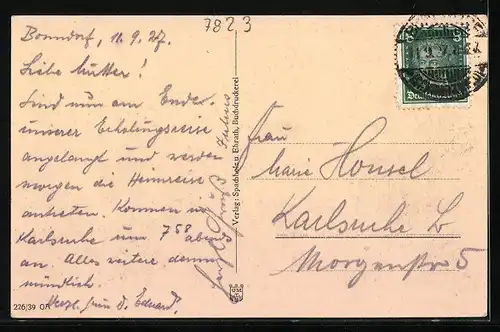 7823
Bonndorf, 11.9.27.
Liebe Mutter!
Sind nun am Ende
unserer Erholungsreise
angelangt und werden
morgen die Heimreise
antreten. Kommen in
Karlsruhe um 7 58 abends
an. Alles weitere dann
mündlich.
Herzl. Gruß d. Eduard.
Gruß
Verlag: Spachholz u. Ehrath, Buchdruckerei
226/39 OA
Frau
Marie Honsel
Karlsruhe b
Morgenstr 5